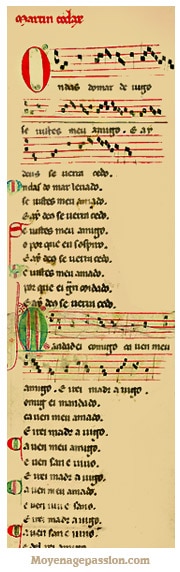 martin codax
Ondas do mar de uigo
se uistes meu amigo. E ay
deus se uerra cedo.
Ondas do mar leuado.
se uistes meu amado.
E ay deus se uerra cedo.
Se uistes meu amigo.
o por que eu sospiro.
E ay deus se uerra cedo.
Se uistes meu amado.
por que ei gran coidado.
E ay deus se uerra cedo
Mandad ei comigo ca uen meu
amigo. E irei madr a uigo.
comig ei mandado.
ca uen meu amado.
E irei madr a uigo.
Ca uen meu amigo.
e uen san e uiuo.
E irei madr a uigo.
Ca uen meu amado.
e uen uiu e sano.
E irei madr a uigo.
Ca uen san e uiuo.
Moyenagepassion.com